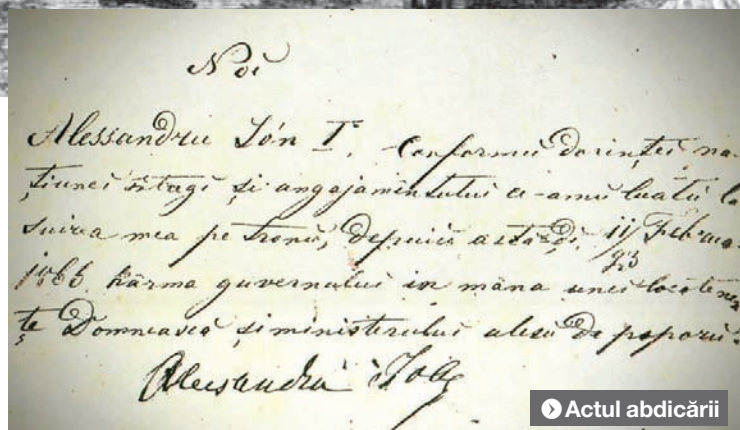 Noi
Alessandru Ión I. Conformŭ dorinței na-
țiunei întregi și angajamîntului ce-amŭ luatŭ la
suirea mea pe tronŭ, depuiŭ astă-đi 11/23 Februa.
1866 kârma guvernului in mâna unei locotenen
țe Domnească și ministerului alesŭ de poporŭ.
Alessandru Ioan
Actul abdicării